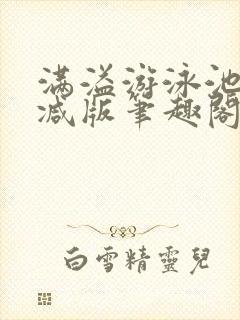 满溢游泳池
减版笔趣阁
白雪精靈兒